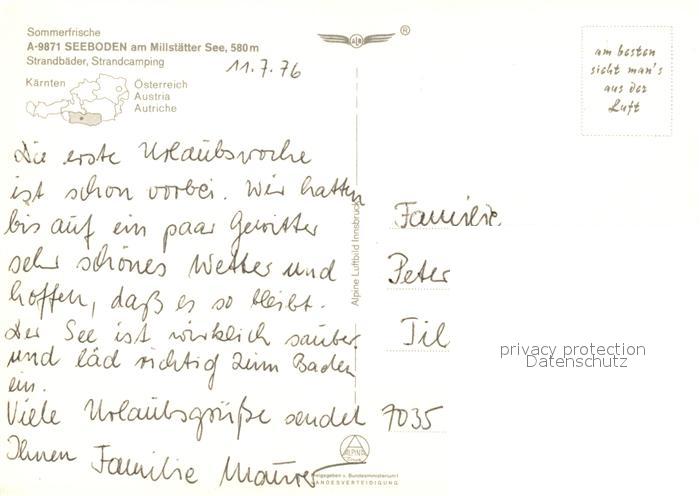 Sommerfrische
A-9871 SEEBODEN am Millstätter See, 580 m
Strandbäder, Strandcamping
Kärnten
Österreich
Austria
Autriche
11.7.76
Die erste Urlaubswoche
ist schon vorbei. Wir hatten
bis auf ein paar Gewitter
sehr schönes Wetter und
hoffen, daß es so bleibt.
Der See ist wirklich sauber
und läd richtig zum Baden
ein.
Viele Urlaubsgrüße sendet
Ihnen Familie Maurer
Alpine Luftbild Innsbruck
®
am besten
sieht man's
aus der
Luft
Familie
Peter
Til
7035
privacy protection
Datenschutz
ALPINE
Freigegeben v. Bundesministerium f.
LANDESVERTEIDIGUNG